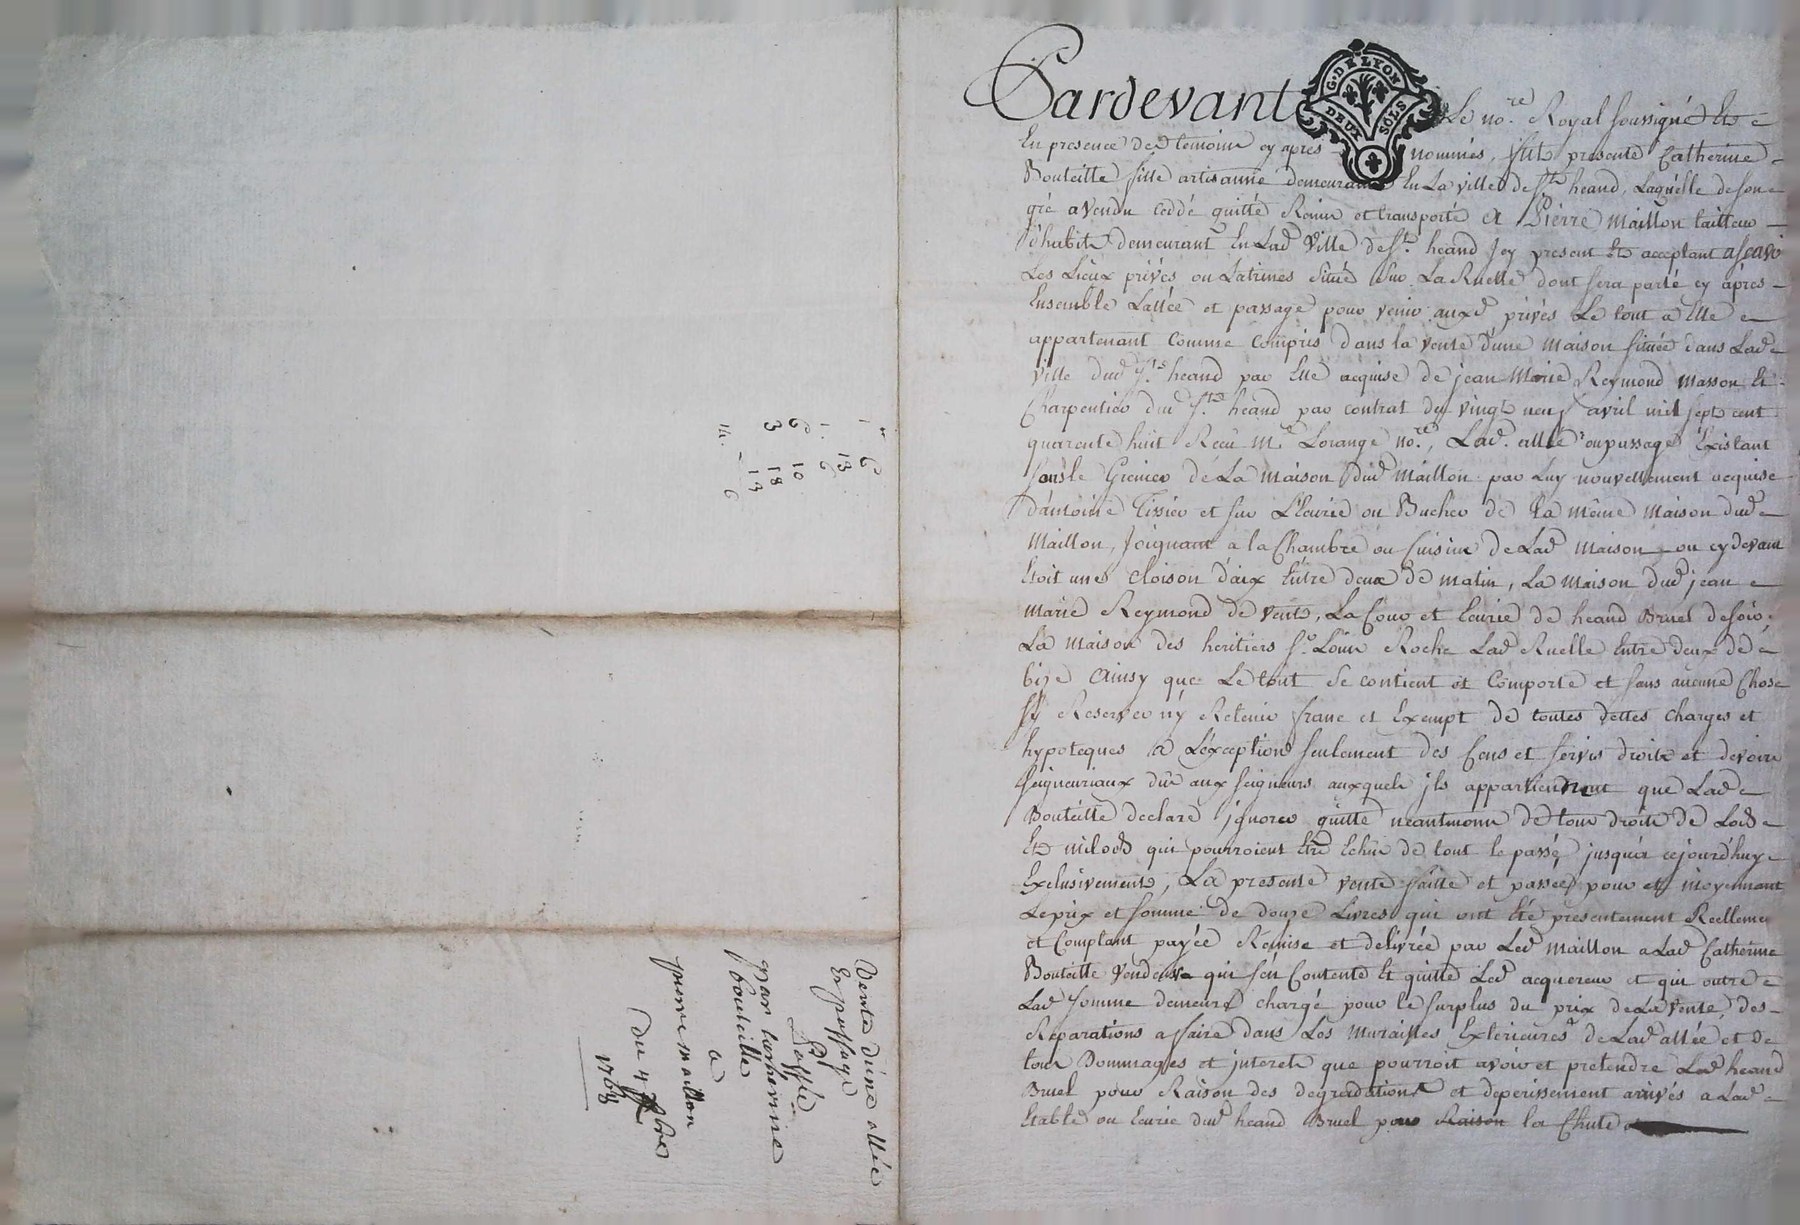 Pardevant Le no.re Royal soussigné Et
G. DE LYON
DEUX SOLS
En presence des temoins cy apres nommés, fut presente Catherine
Bouteille fille artisanne demeurante En La ville de St. heand, Laquelle de son
gré a vendu ceddé quitté Remis et transporté A Pierre Maillon tailleur
d'habits demeurant En Lad. Ville de St. heand Jcy present Et acceptant ascavoir
Les Lieux privés ou Latrines situés sur La Ruelle dont sera parlé cy après
Ensemble L'allée et passage pour venir auxd. privés Le tout a Elle
appartenant Comme Compris dans la vente d'une maison située dans Lad.
ville dud. St. heand par Elle acquise de jean Marie Reymond masson Et
Charpentier dud. St. heand par contrat du vingt neuf avril mil sept cent
quarente huit Reçu Me. Lorange no.re, Lad. allée ou passage Existant
sous le Grenier de La maison dud. Maillon par Luy nouvellement acquise
d'antoine Tissier et sur L'Ecurie ou Bucher de la même maison dud.
Maillon, Joignant a la Chambre ou Cuisine de Lad. maison ou cydevant
Etoit une cloison d'aix Entre deux de matin, La maison dud. jean
marie Reymond de vent, La Cour et Ecurie de heand Bruel de soir,
La maison des heritiers Sr. Louis Roche Lad. Ruelle Entre deux de
bize Ainsy que Le tout Se contient et Comporte et sans aucune Chose
sy Reserver ny Retenir franc et Exempt de toutes dettes charges et
hypoteques a L'exception seulement des Cens et servis droits et devoirs
seigneuriaux dûs aux seigneurs auxquels jls appartiendront que Lad.
Bouteille declare jgnorer quitte neantmoins de tous droits de Lods
Et milods qui pourroient Etre Echus de tout le passé jusqu'a cejourd'huy
Exclusivement, La presente vente faitte et passée pour et moyennant
Le prix et somme de douze Livres qui ont Eté presentement Reellement
et Comptant payée Remise et delivrée par Led. Maillon a Lad. Catherine
Bouteille venderesse qui s'en Contente Et quitte Led. acquereur et qui outre
Lad. somme demeure chargé pour le surplus du prix de La vente, des
Reparations a faire dans Les murailles Exterieures de Lad. allée et de
tous Dommages et jnterets que pourroit avoir et pretendre Led. heand
Bruel pour Raison des degradations et deperissement arrivés a Lad.
Etable ou Ecurie dud. heand Bruel pour Raison la Chute
Vente d'une allée
Et passage
Passée
par catherine
bouteille
a
pierre maillon
Du 4 8bre
1768
1 6
1. 13
6 6
3 10
18
14. 13 6